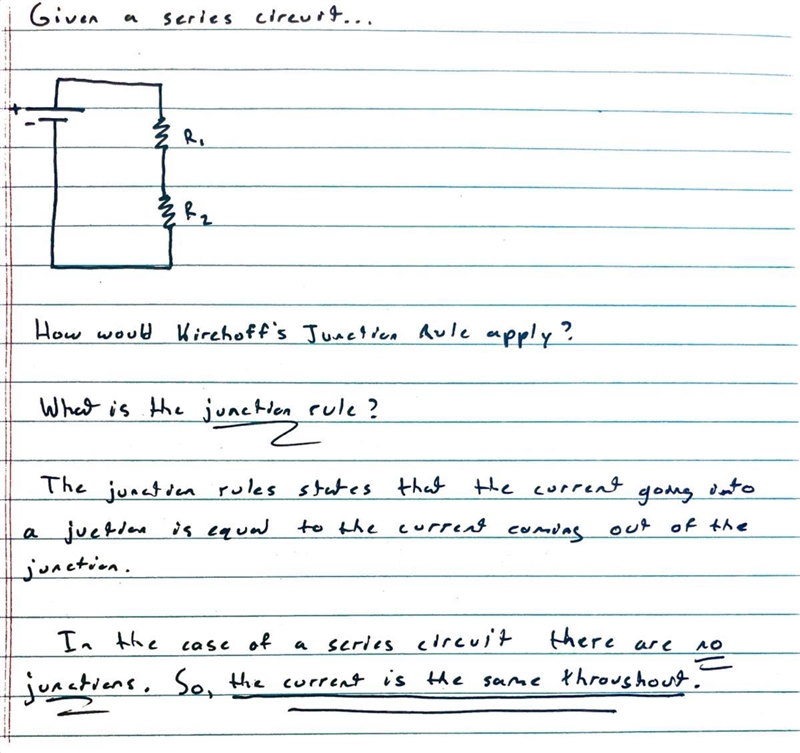 Given a series circuit...
+
-
R1
R2
How would Kirchoff's Junction Rule apply?
What is the junction rule?
The junction rules states that the current going into
a juction is equal to the current coming out of the
junction.
In the case of a series circuit there are no
junctions. So, the current is the same throughout.